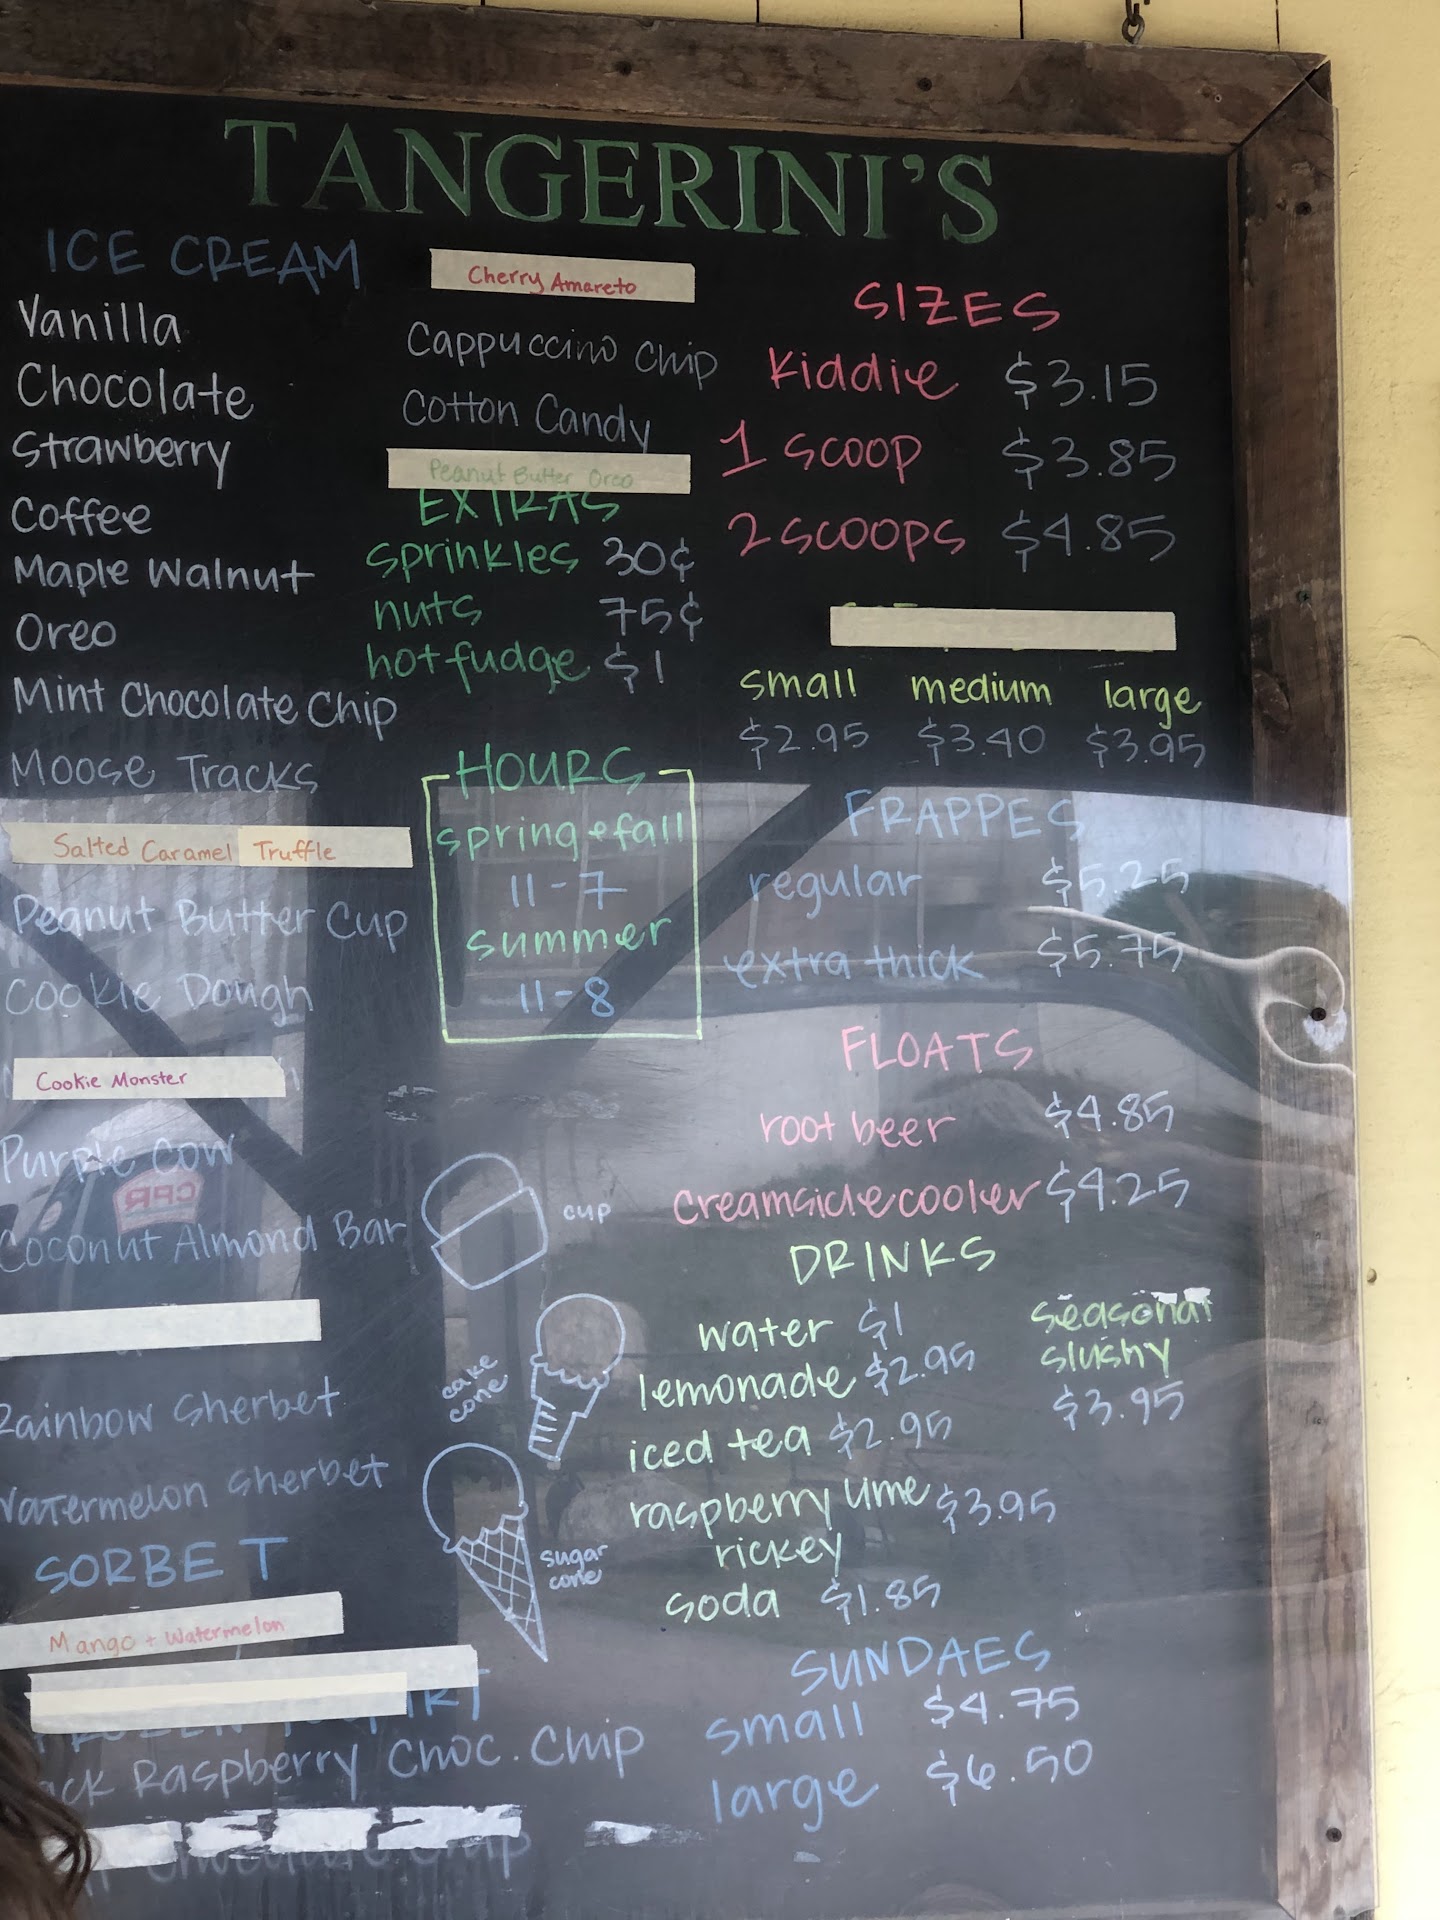 TANGERINI'S
ICE CREAM
Vanilla
Chocolate
Strawberry
Coffee
Maple Walnut
Oreo
Mint Chocolate Chip
Moose Tracks
Salted Caramel Truffle
Peanut Butter Cup
Cookie Dough
Cookie Monster
Purple Cow
Coconut Almond Bar
Rainbow Sherbet
Watermelon Sherbet
SORBET
Mango + Watermelon
Raspberry Choc. Chip
Cherry Amareto
Cappuccino Chip
Cotton Candy
Peanut Butter Oreo
EXTRAS
sprinkles 30¢
nuts 75¢
hot fudge $1
HOURS
spring + fall
11-7
summer
11-8
cup
cake
cone
sugar
cone
SIZES
Kiddie $3.15
1 scoop $3.85
2 scoops $4.85
small medium large
$2.95 $3.40 $3.95
FRAPPES
regular $5.25
extra thick $5.75
FLOATS
root beer $4.85
creamsicle cooler $4.25
DRINKS
water $1
lemonade $2.95
iced tea $2.95
raspberry lime $3.95
rickey
soda $1.85
seasonal
slushy
$3.95
SUNDAES
small $4.75
large $6.50